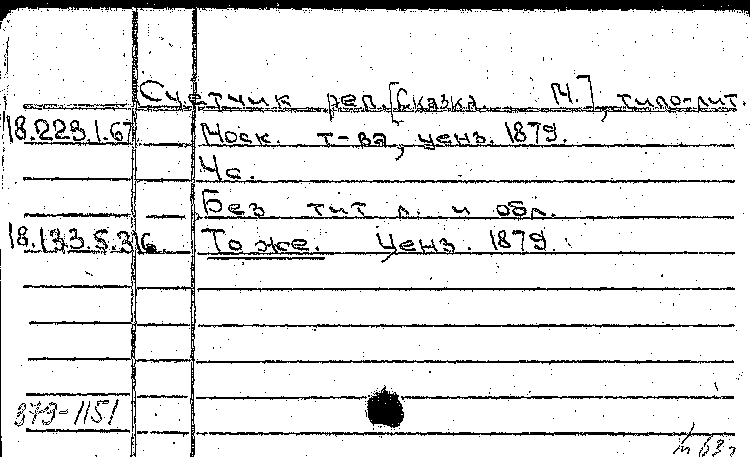 Счетчик реп. [Сказка. М.], типо-лит.
18.223.1.67 Моск. т-ва, ценз. 1879.
4с.
Без тит л. и обл.
18.133.5.316 То же. Ценз. 1879.
379-1151